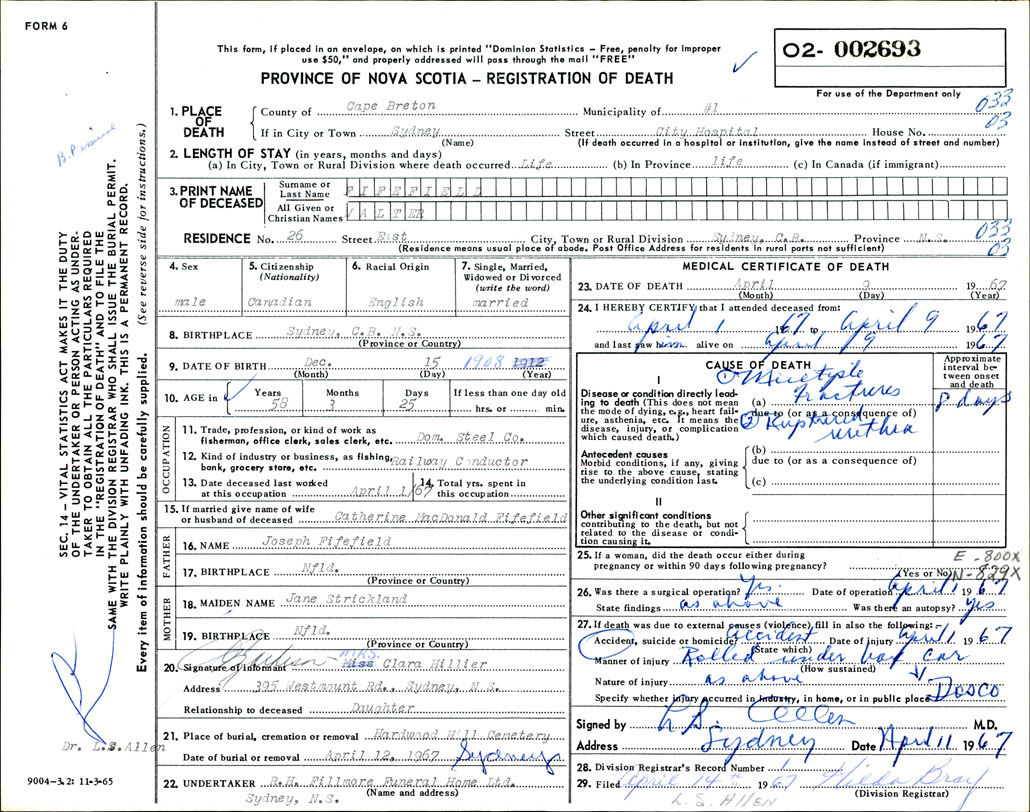 FORM 6
This form, if placed in an envelope, on which is printed "Dominion Statistics — Free, penalty for improper
use $50," and properly addressed will pass through the mail "FREE"
PROVINCE OF NOVA SCOTIA — REGISTRATION OF DEATH
O2- 002693
For use of the Department only
033
03
1. PLACE OF DEATH
County of Cape Breton Municipality of #1
If in City or Town Sydney Street City Hospital House No.
(Name) (If death occurred in a hospital or institution, give the name instead of street and number)
2. LENGTH OF STAY (in years, months and days)
(a) In City, Town or Rural Division where death occurred Life (b) In Province life (c) In Canada (if immigrant)
3. PRINT NAME OF DECEASED
Surname or Last Name FIFEFIELD
All Given or Christian Names WALTER
033
03
RESIDENCE No. 26 Street East City, Town or Rural Division Sydney, C.B. Province N.S.
(Residence means usual place of abode. Post Office Address for residents in rural parts not sufficient)
4. Sex
male
5. Citizenship
(Nationality)
Canadian
6. Racial Origin
English
7. Single, Married,
Widowed or Divorced
(write the word)
married
8. BIRTHPLACE Sydney, C.B. N.S.
(Province or Country)
9. DATE OF BIRTH Dec. 15 1908 1912
(Month) (Day) (Year)
10. AGE in Years 58 Months 3 Days 25 If less than one day old
hrs. or min.
OCCUPATION
11. Trade, profession, or kind of work as
fisherman, office clerk, sales clerk, etc. Dom. Steel Co.
12. Kind of industry or business, as fishing,
bank, grocery store, etc. Railway Conductor
13. Date deceased last worked
at this occupation April 1/67
14. Total yrs. spent in
this occupation
15. If married give name of wife
or husband of deceased Catherine MacDonald Fifefield
FATHER
16. NAME Joseph Fifefield
17. BIRTHPLACE Nfld.
(Province or Country)
MOTHER
18. MAIDEN NAME Jane Strickland
19. BIRTHPLACE Nfld.
(Province or Country)
20. Signature of informant MRS. Miss Clara Hillier
Address 395 Westmount Rd., Sydney, N.S.
Relationship to deceased Daughter
21. Place of burial, cremation or removal Hardwood Hill Cemetery
Date of burial or removal April 12, 1967 Sydney
22. UNDERTAKER R.H. Fillmore Funeral Home Ltd.
Sydney, N.S. (Name and address)
MEDICAL CERTIFICATE OF DEATH
23. DATE OF DEATH April 9 1967
(Month) (Day) (Year)
24. I HEREBY CERTIFY that I attended deceased from:
April 1 1967 to April 9 1967
and last saw him alive on April 9 1967
CAUSE OF DEATH
Approximate
interval be-
tween onset
and death
I
Disease or condition directly lead-
ing to death (This does not mean
the mode of dying, e.g., heart fail-
ure, asthenia, etc. It means the
disease, injury, or complication
which caused death.)
(a) ① Multiple
fractures 8 days
due to (or as a consequence of)
② Ruptured
urethra
Antecedent causes
Morbid conditions, if any, giving
rise to the above cause, stating
the underlying condition last.
(b)
due to (or as a consequence of)
(c)
II
Other significant conditions
contributing to the death, but not
related to the disease or condi-
tion causing it.
25. If a woman, did the death occur either during
pregnancy or within 90 days following pregnancy?
(Yes or No)
E -800X
N-829X
26. Was there a surgical operation? Yes. Date of operation April 1 1967
State findings as above Was there an autopsy? yes
27. If death was due to external causes (violence) fill in also the following:—
Accident, suicide or homicide? accident Date of injury April 1 1967
(State which)
Manner of injury Rolled under box car
(How sustained)
Nature of injury as above
Specify whether injury occurred in industry, in home, or in public place DOSCO
Signed by L.S. Allen M.D.
Address Sydney Date April 11 1967
28. Division Registrar's Record Number
29. Filed April 14th 1967 Hilda Bray
(Division Registrar)
L. S. ALLEN
SEC. 14 — VITAL STATISTICS ACT MAKES IT THE DUTY
OF THE UNDERTAKER OR PERSON ACTING AS UNDER-
TAKER TO OBTAIN ALL THE PARTICULARS REQUIRED
IN THE "REGISTRATION OF DEATH" AND TO FILE THE
SAME WITH THE DIVISION REGISTRAR WHO SHALL ISSUE THE BURIAL PERMIT.
WRITE PLAINLY WITH UNFADING INK. THIS IS A PERMANENT RECORD.
Every item of information should be carefully supplied. (See reverse side for instructions.)
Dr. L.S. Allen
9004—3.2: 11-3-65